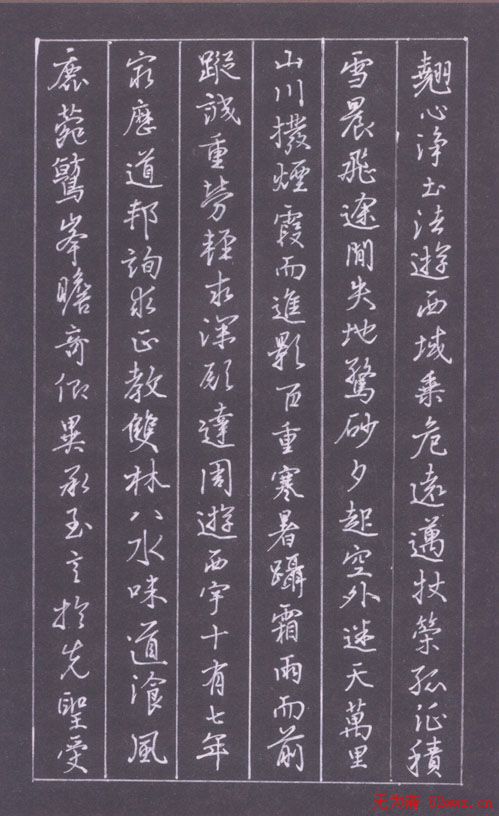 翹心淨土法遊西域乘危遠邁杖策孤征積
雪晨飛途間失地驚砂夕起空外迷天萬里
山川撥煙霞而進影百重寒暑躡霜雨而前
蹤誠重勞輕求深願達周遊西宇十有七年
窮歷道邦詢求正教雙林八水味道湌風
鹿菀鷲峯瞻奇仰異承至言於先聖受